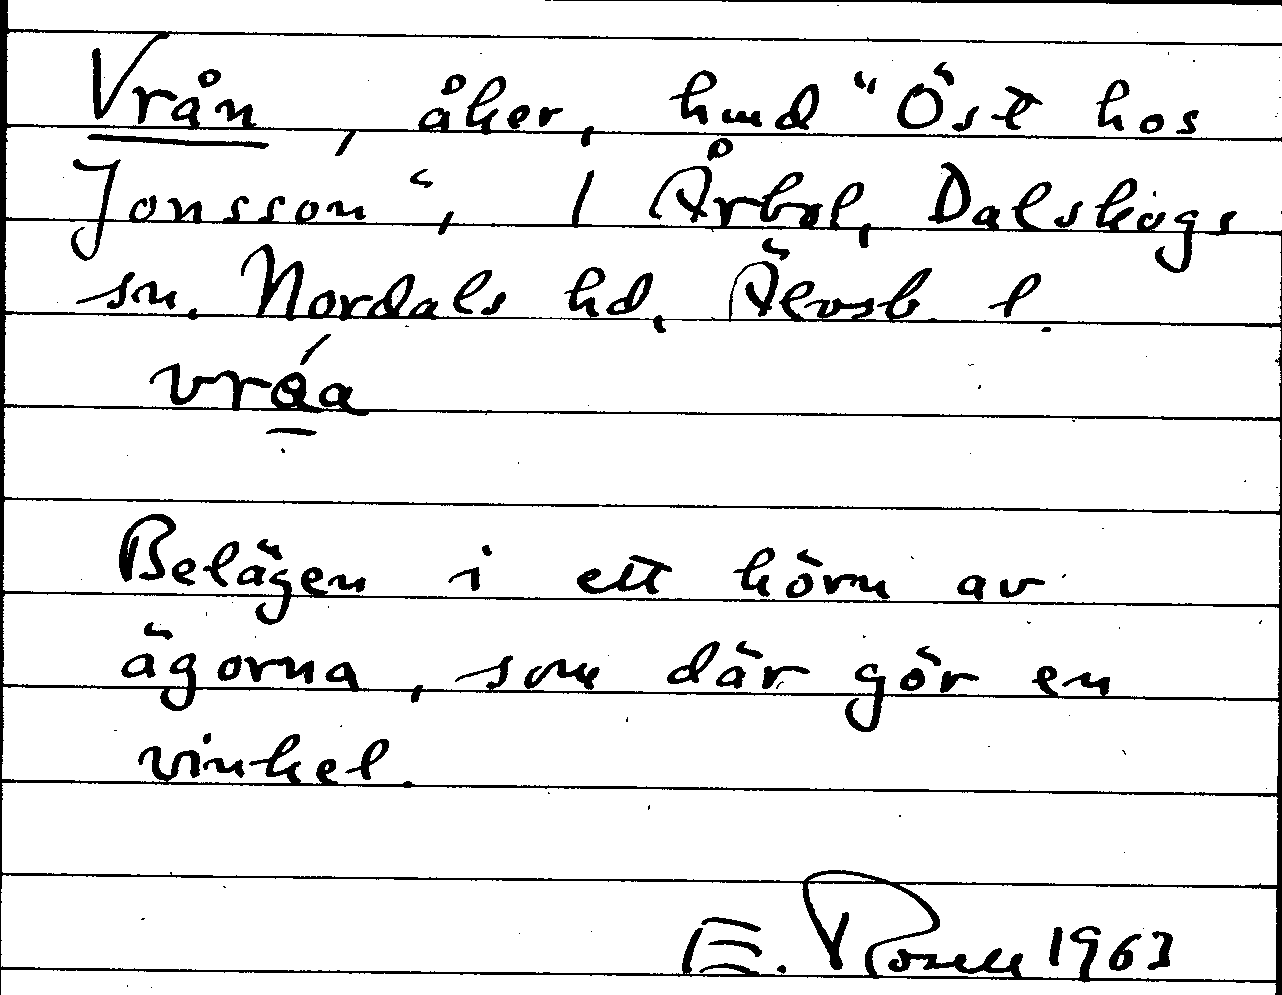 Vrån, åker, hmd "Öst hos
Jonsson", 1 Årbol, Dalskogs
sn. Nordals hd, Älvsb. l.
vråa
Belägen i ett hörn av
ägorna, som där gör en
vinkel.
E. Rosell 1963